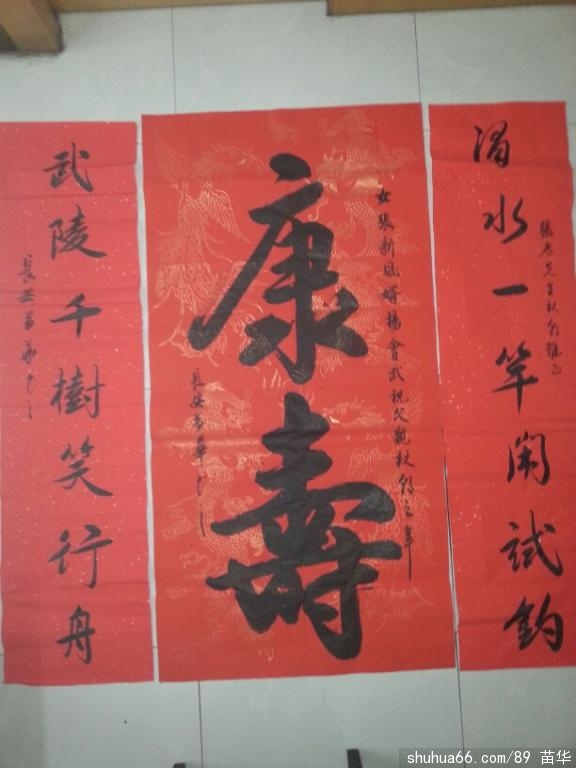 渭水一竿闲試釣
張老先生杖朝雅正
女張新凤婿楊會武祝父親杖朝之年
康壽
長安苗華书之
武陵千樹笑行舟
長安苗華书之
shuhua66.com/89 苗华